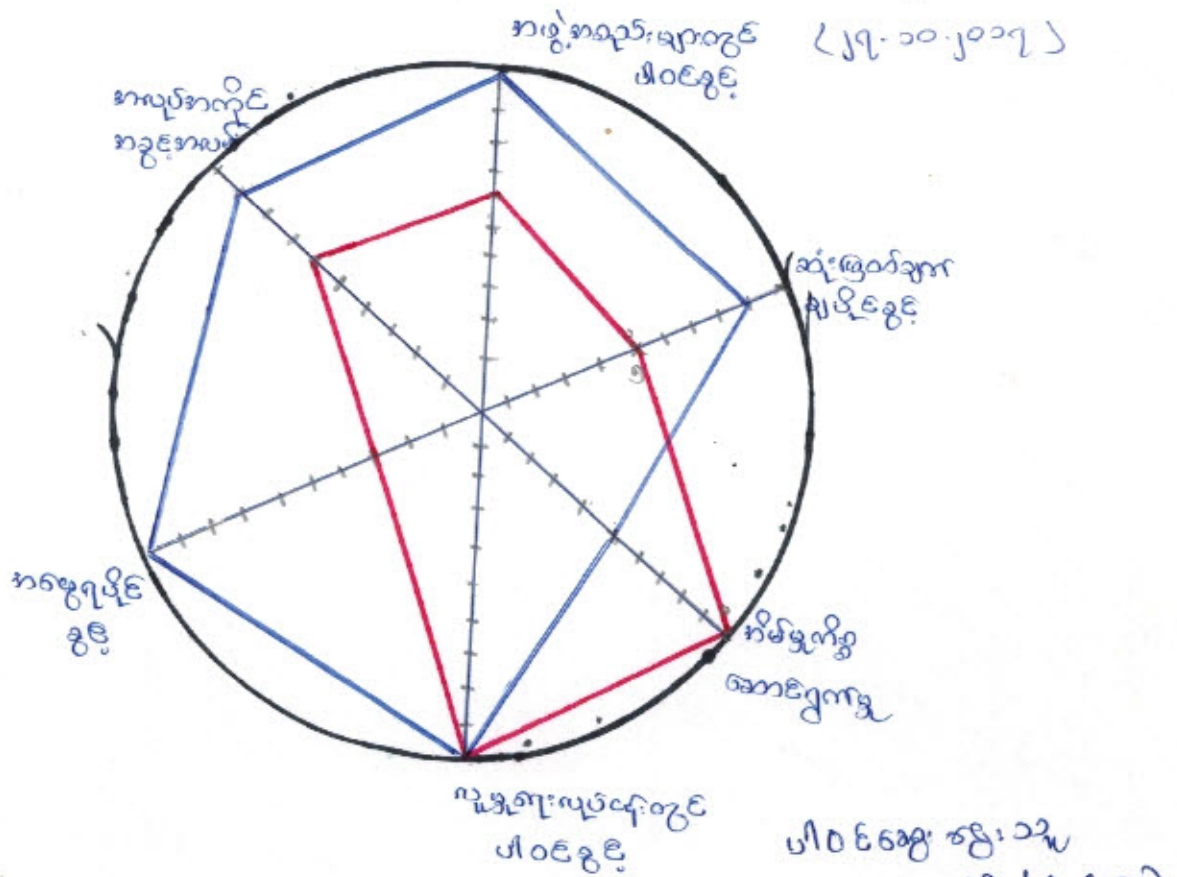 အဖွဲ့အစည်းများတွင်
ပါဝင်ခွင့်
(၂၇.၁၀.၂၀၁၇)
အလုပ်အကိုင်
အခွင့်အလမ်း
ဆုံးဖြတ်ချက်
ချပိုင်ခွင့်
၅
အမွေရပိုင်
ခွင့်
အိမ်မှုကိစ္စ
ဆောင်ရွက်မှု
လူမှုရေးလုပ်ငန်းတွင်
ပါဝင်ခွင့်
ပါဝင်ဆွေးနွေးသူ